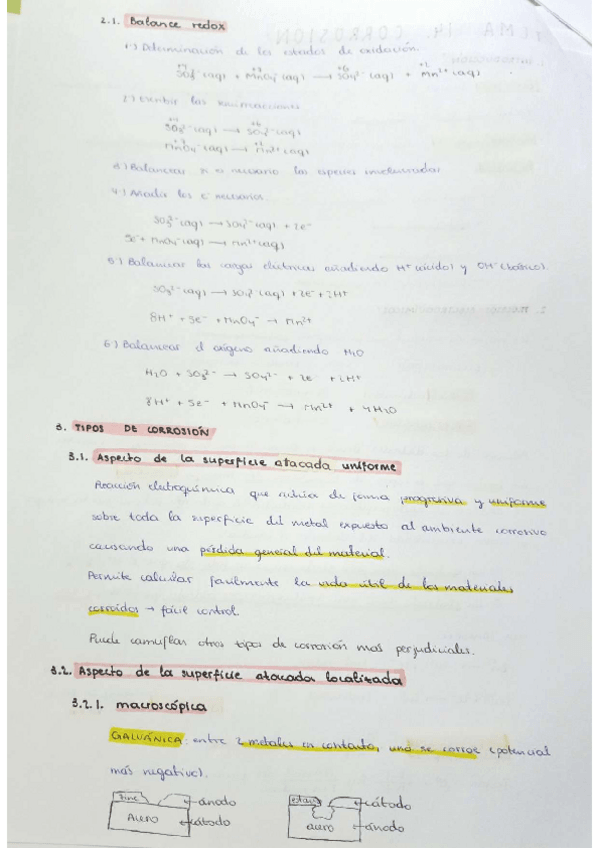 2.1. Balance redox
1) Determinación de los estados de oxidación.
SO₃²⁻(aq) + MnO₄⁻(aq) → SO₄²⁻(aq) + Mn²⁺(aq)
2) Escribir las semirreacciones
SO₃²⁻(aq) → SO₄²⁻(aq)
MnO₄⁻(aq) → Mn²⁺(aq)
3) Balancear si es necesario las especies involucradas
4) Añadir los e⁻ necesarios
SO₃²⁻(aq) → SO₄²⁻(aq) + 2e⁻
5e⁻ + MnO₄⁻(aq) → Mn²⁺(aq)
5) Balancear las cargas eléctricas añadiendo H⁺ (ácido) y OH⁻ (básico).
SO₃²⁻(aq) → SO₄²⁻(aq) + 2e⁻ + 2H⁺
8H⁺ + 5e⁻ + MnO₄⁻ → Mn²⁺
6) Balancear el oxígeno añadiendo H₂O
H₂O + SO₃²⁻ → SO₄²⁻ + 2e⁻ + 2H⁺
8H⁺ + 5e⁻ + MnO₄⁻ → Mn²⁺ + 4H₂O
3. TIPOS DE CORROSIÓN
3.1. Aspecto de la superficie atacada uniforme
Reacción electroquímica que actúa de forma progresiva y uniforme
sobre toda la superficie del metal expuesto al ambiente corrosivo
causando una pérdida general del material.
Permite calcular facilmente la vida útil de los materiales
corroídos → fácil control.
Puede camuflar otros tipos de corrosión mas perjudiciales.
3.2. Aspecto de la superficie atacada localizada
3.2.1. macroscópica
GALVÁNICA: entre 2 metales en contacto, uno se corroe (potencial
más negativo).
zinc ánodo
Acero cátodo
estaño cátodo
acero ánodo